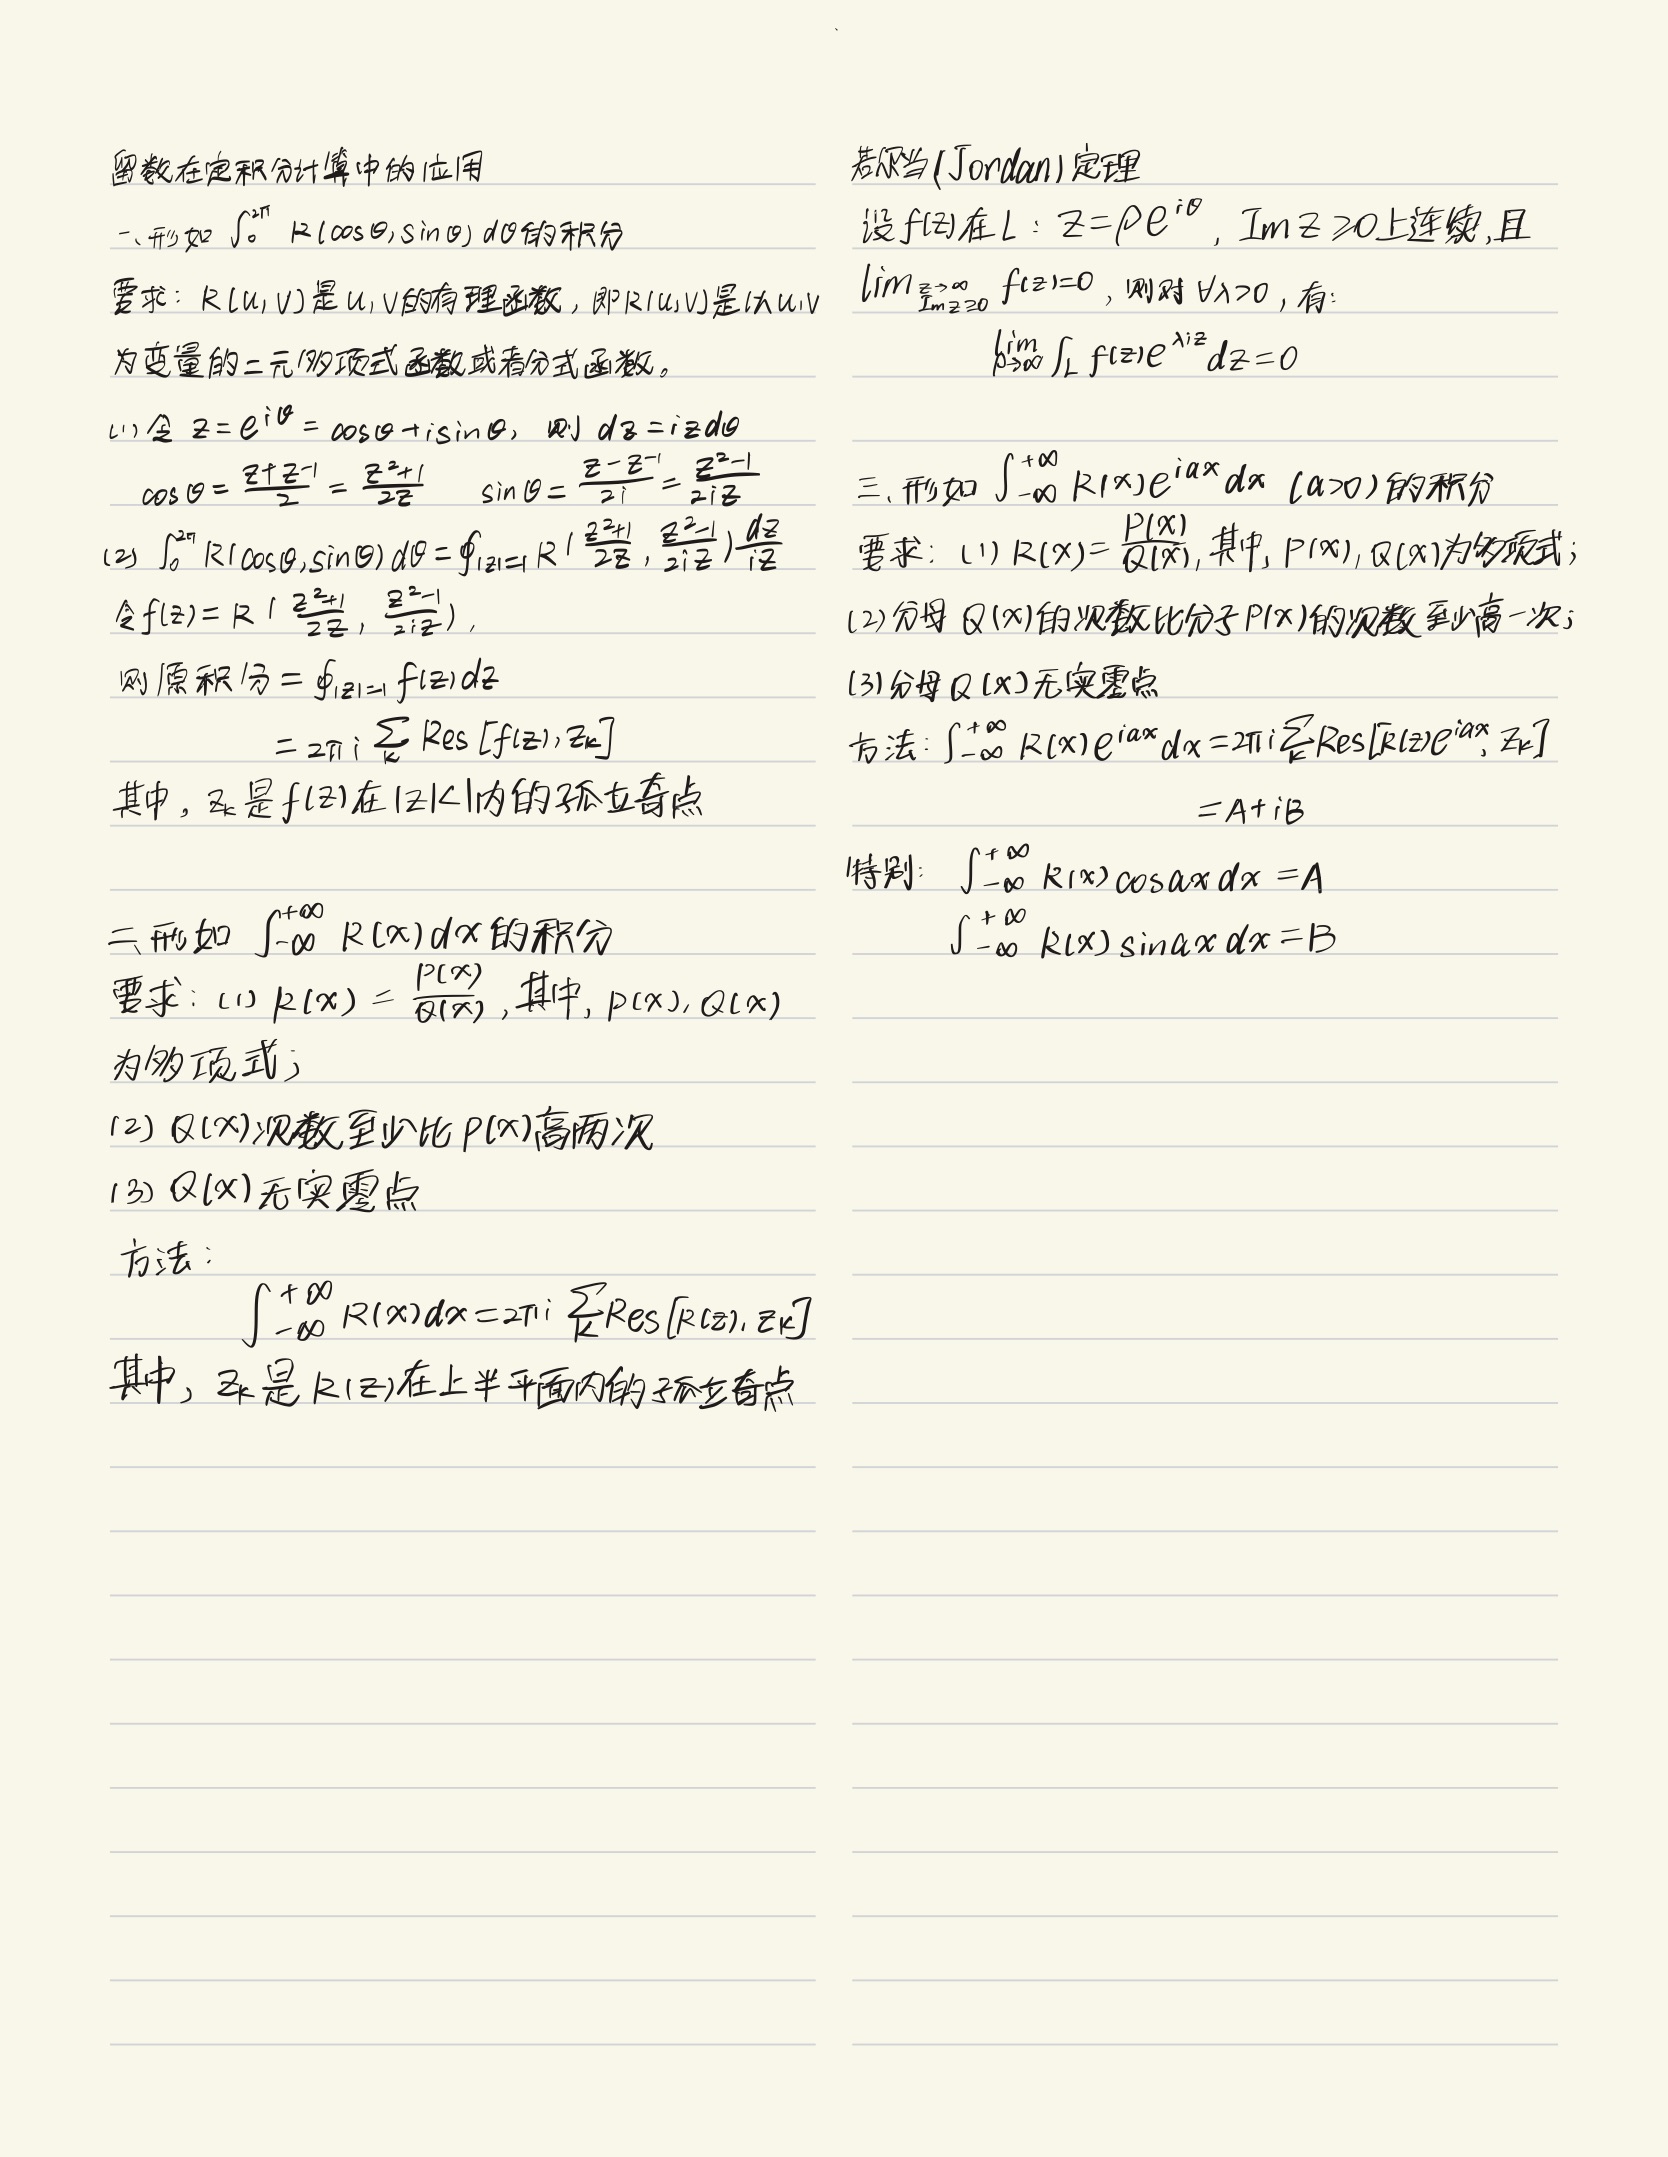 留数在定积分计算中的应用
一、形如 ∫₀^{2π} R(cosθ, sinθ) dθ的积分
要求: R(u, v) 是 u, v的有理函数, 即R(u,v)是以u,v
为变量的二元多项式函数或者分式函数。
(1) 令 z = e^{iθ} = cosθ + i sinθ, 则 dz = iz dθ
cosθ = \frac{z+z^{-1}}{2} = \frac{z²+1}{2z} sinθ = \frac{z-z^{-1}}{2i} = \frac{z²-1}{2iz}
(2) ∫₀^{2π} R(cosθ, sinθ) dθ = ∮_{|z|=1} R(\frac{z²+1}{2z}, \frac{z²-1}{2iz}) \frac{dz}{iz}
令f(z) = R(\frac{z²+1}{2z}, \frac{z²-1}{2iz}),
则原积分 = ∮_{|z|=1} f(z) dz
= 2πi \sum_k Res [f(z), z_k]
其中, z_k 是 f(z) 在 |z|<1内的孤立奇点
二、形如 ∫_{-∞}^{+∞} R(x) dx 的积分
要求: (1) R(x) = \frac{P(x)}{Q(x)}, 其中, P(x), Q(x)
为多项式;
(2) Q(x)次数至少比 P(x)高两次
(3) Q(x) 无实零点
方法:
∫_{-∞}^{+∞} R(x) dx = 2πi \sum_k Res [R(z), z_k]
其中, z_k 是 R(z) 在上半平面内的孤立奇点
若尔当(Jordan)定理
设 f(z) 在 L : z = ρe^{iθ}, Im z ≥ 0上连续,且
lim_{z→∞, Im z≥0} f(z)=0, 则对 ∀λ>0, 有:
lim_{ρ→∞} ∫_L f(z) e^{λiz} dz = 0
三、形如 ∫_{-∞}^{+∞} R(x) e^{iax} dx (a>0) 的积分
要求: (1) R(x) = \frac{P(x)}{Q(x)}, 其中, P(x), Q(x)为多项式;
(2)分母 Q(x)的次数比分子P(x)的次数至少高一次;
(3)分母 Q(x) 无实零点
方法: ∫_{-∞}^{+∞} R(x) e^{iax} dx = 2πi \sum_k Res[R(z)e^{iax}, z_k]
= A + iB
特别: ∫_{-∞}^{+∞} R(x) cosax dx = A
∫_{-∞}^{+∞} R(x) sinax dx = B